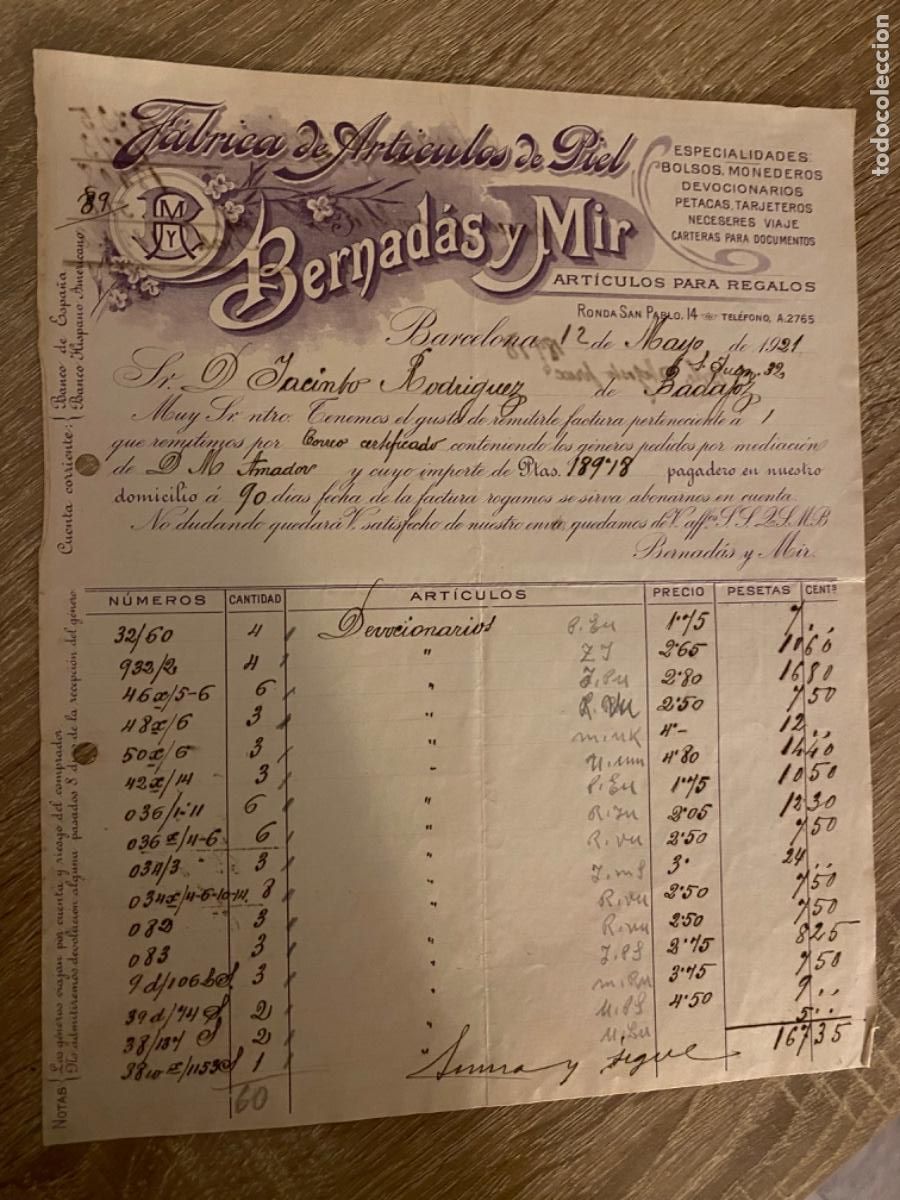 todocoleccion
Fábrica de Artículos de Piel
ESPECIALIDADES:
BOLSOS, MONEDEROS
DEVOCIONARIOS
PETACAS, TARJETEROS
NECESERES VIAJE
CARTERAS PARA DOCUMENTOS
89
B M Y
Bernadás y Mir
ARTÍCULOS PARA REGALOS
RONDA SAN PABLO, 14 TELÉFONO, A.2765
Barcelona 12 de Mayo de 1921
S. Juan. 32
Sr. D Jacinto Rodriguez de Badajoz
Muy Sr. ntro: Tenemos el gusto de remitirle factura perteneciente á 1
que remitimos por Correo certificado conteniendo los géneros pedidos por mediación
de D M Amador y cuyo importe de Ptas. 189'18 pagadero en nuestro
domicilio á 90 dias fecha de la factura rogamos se sirva abonarnos en cuenta.
No dudando quedará V. satisfecho de nuestro envio quedamos de V. affmos S.S.Q.S.M.B
Bernadás y Mir.
Cuenta corriente: Banco de España
Banco Hispano Americano
NOTAS Los géneros viajan por cuenta y riesgo del comprador
No admitiremos devolución alguna pasados 8 de la recepción del género
NÚMEROS CANTIDAD ARTÍCULOS PRECIO PESETAS CENTS
32/60 4 Devocionarios P.Eu 1'75 7 ..
933/2 4 " ZJ 2'65 10 60
46x/5-6 6 " 2'80 16 80
48x/6 3 " 2'50 7 50
50x/6 3 " 4'- 12 ..
42x/14 3 " 4'80 14 40
036/1-11 6 " P.Eu 1'75 10 50
036x/4-6 6 " 2'05 12 30
034/3 3 " R.vu 2'50 7 50
034x/4-6-10-14 8 " 3' 24 ..
082 3 " R.vu 2'50 7 50
083 3 " R.vu 2'50 7 50
9d/106 3 " 2'75 8 25
39d/74 2 " 3'75 7 50
38/137 2 " 4'50 9 ..
1 " 5 ..
60 Suma y sigue 167 35